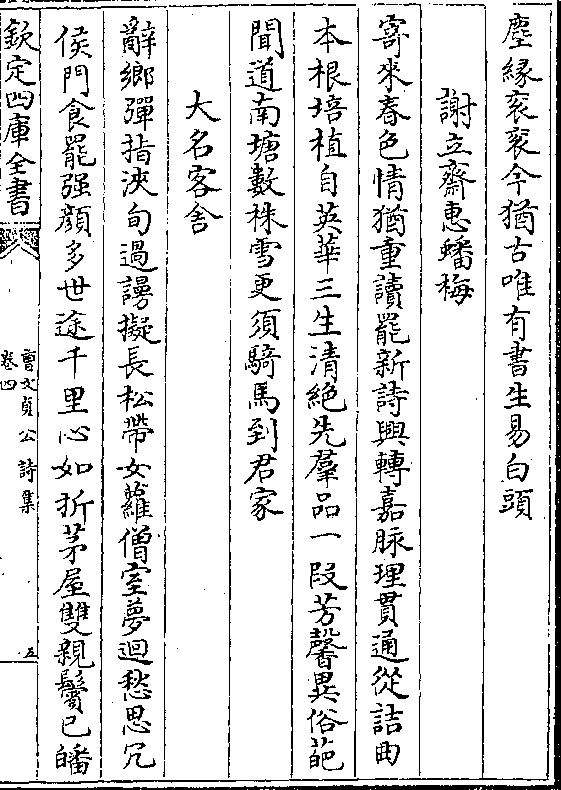 塵緣衮衮今猶古唯有書生易白頭
謝立齋惠蟠梅
寄來春色情猶重讀罷新詩興轉嘉脉理貫通從詰曲
本根培植自英華三生清絶先羣品一段芳馨異俗葩
聞道南塘數株雪更須騎馬到君家
大名客舍
辭鄉彈指浹旬過謾擬長松帶女蘿僧室夢迴愁思冗
侯門食罷强顔多世途千里心如折茅屋雙親鬢已皤
欽定四庫全書
曹文貞公詩集
卷四
五